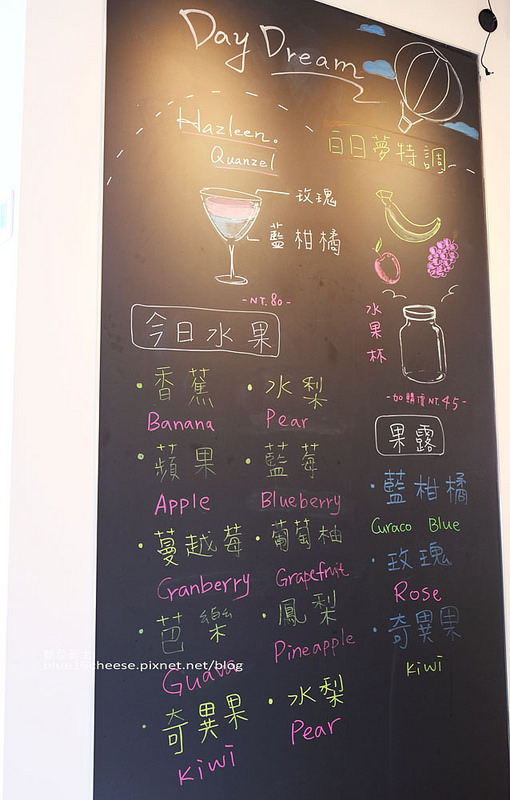 Day Dream
Hazleen.
Quanzel
白日夢特調
玫瑰
藍柑橘
-NT.80-
水果杯
-加購價NT.45-
今日水果
・香蕉
Banana
・水梨
Pear
・蘋果
Apple
・藍莓
Blueberry
・蔓越莓
Cranberry
・葡萄柚
Grapefruit
・芭樂
Guava
・鳳梨
Pineapple
・奇異果
Kiwi
・水梨
Pear
果露
・藍柑橘
Curaco Blue
・玫瑰
Rose
・奇異果
Kiwi
blue10cheese.pixnet.net/blog